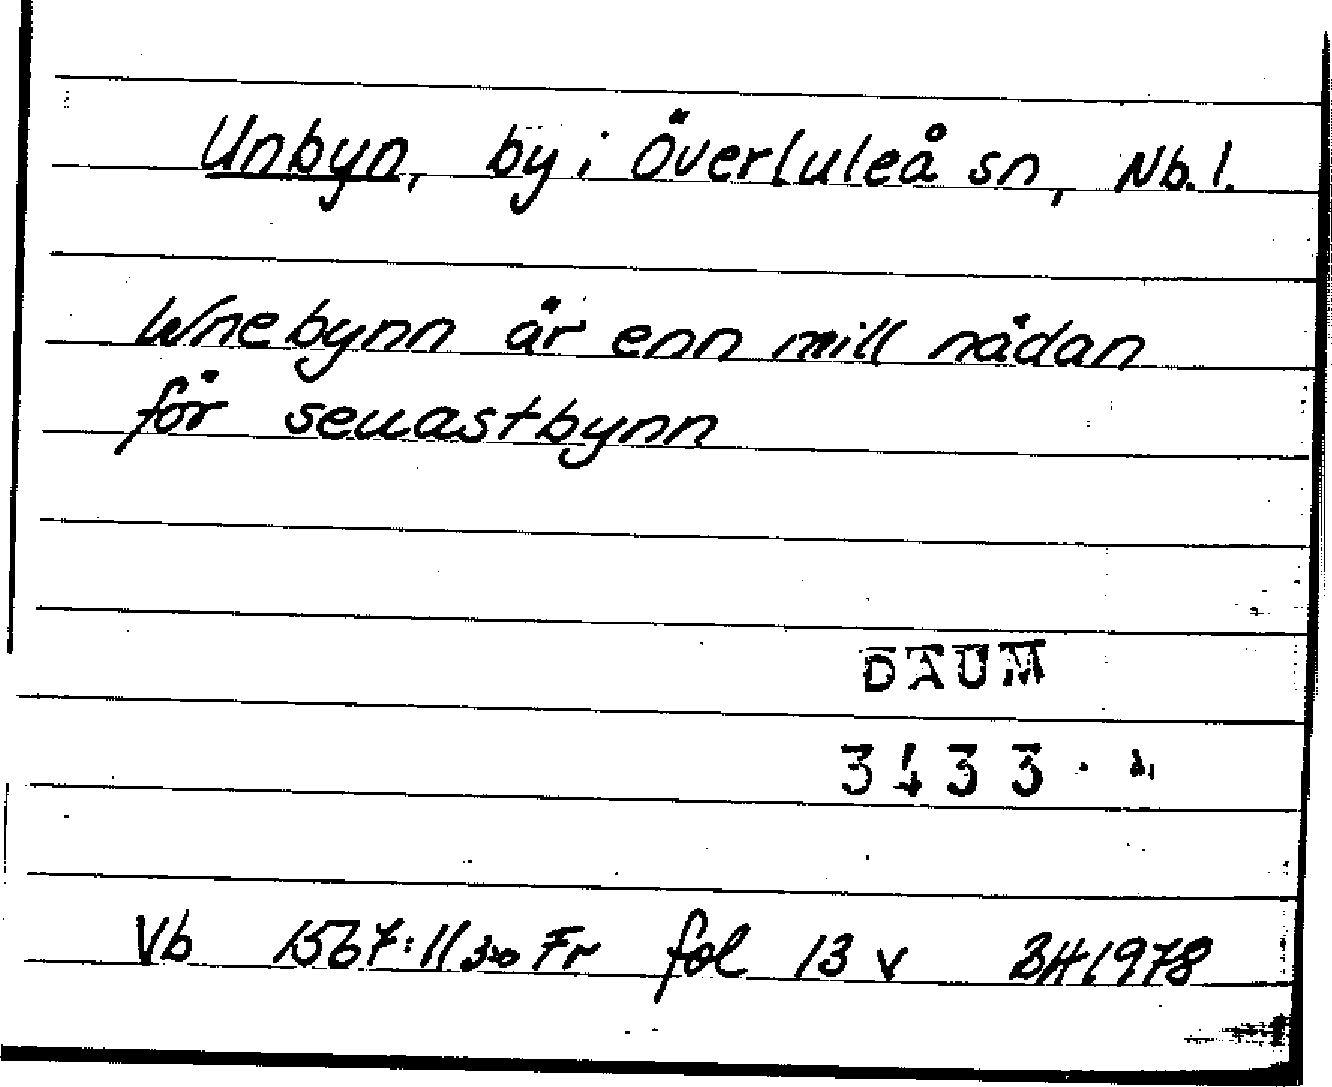 Unbyn, by i Överluleå sn, Nb.l.
Wnebynn är enn mill nådan
för seuastbynn
DAUM
3433
Vb 1567:11 Fr fol 13 v BH 1978